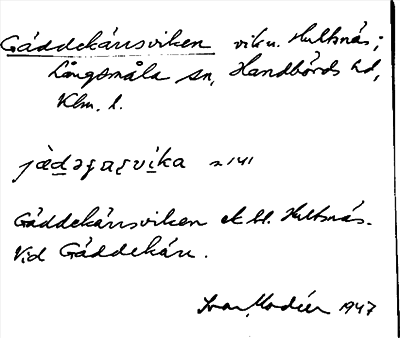 Gäddekärrsviken vik u. Hultsnäs;
Långasjömåla sn, Handbörds hd,
Klm. l.
s 141
Gäddekärrsviken ek bl. Hultsnäs.
Vid Gäddekärr.
Ivar Modéer 1947